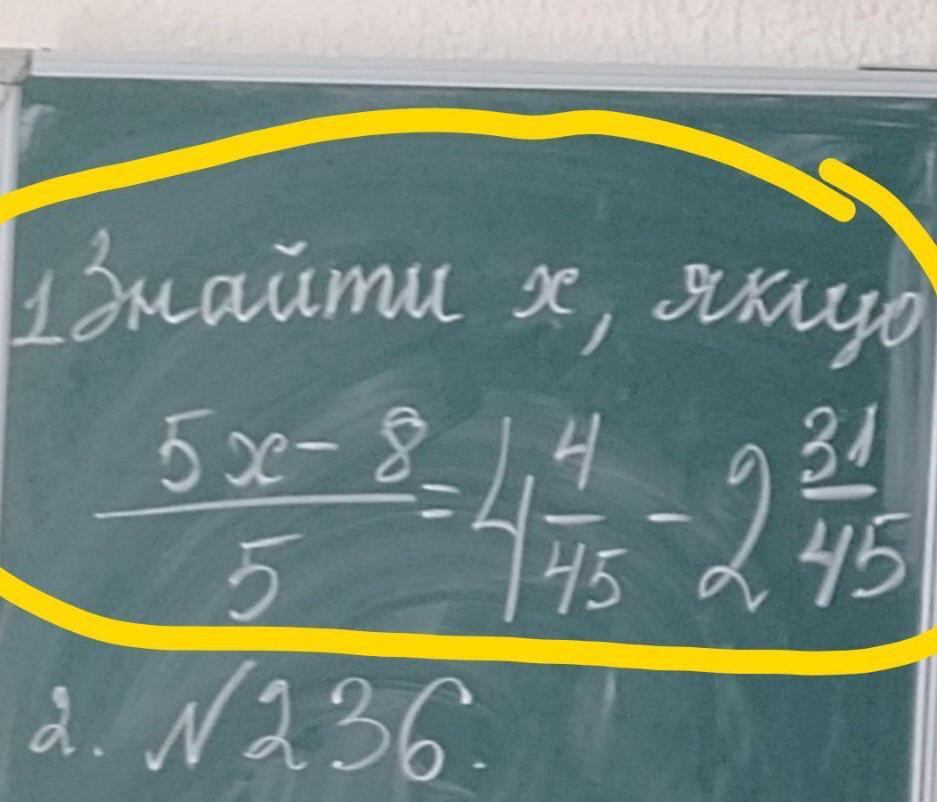 1 Знайти x, якщо
5x - 8 / 5 = 4 4/45 - 2 31/45
2. №236.